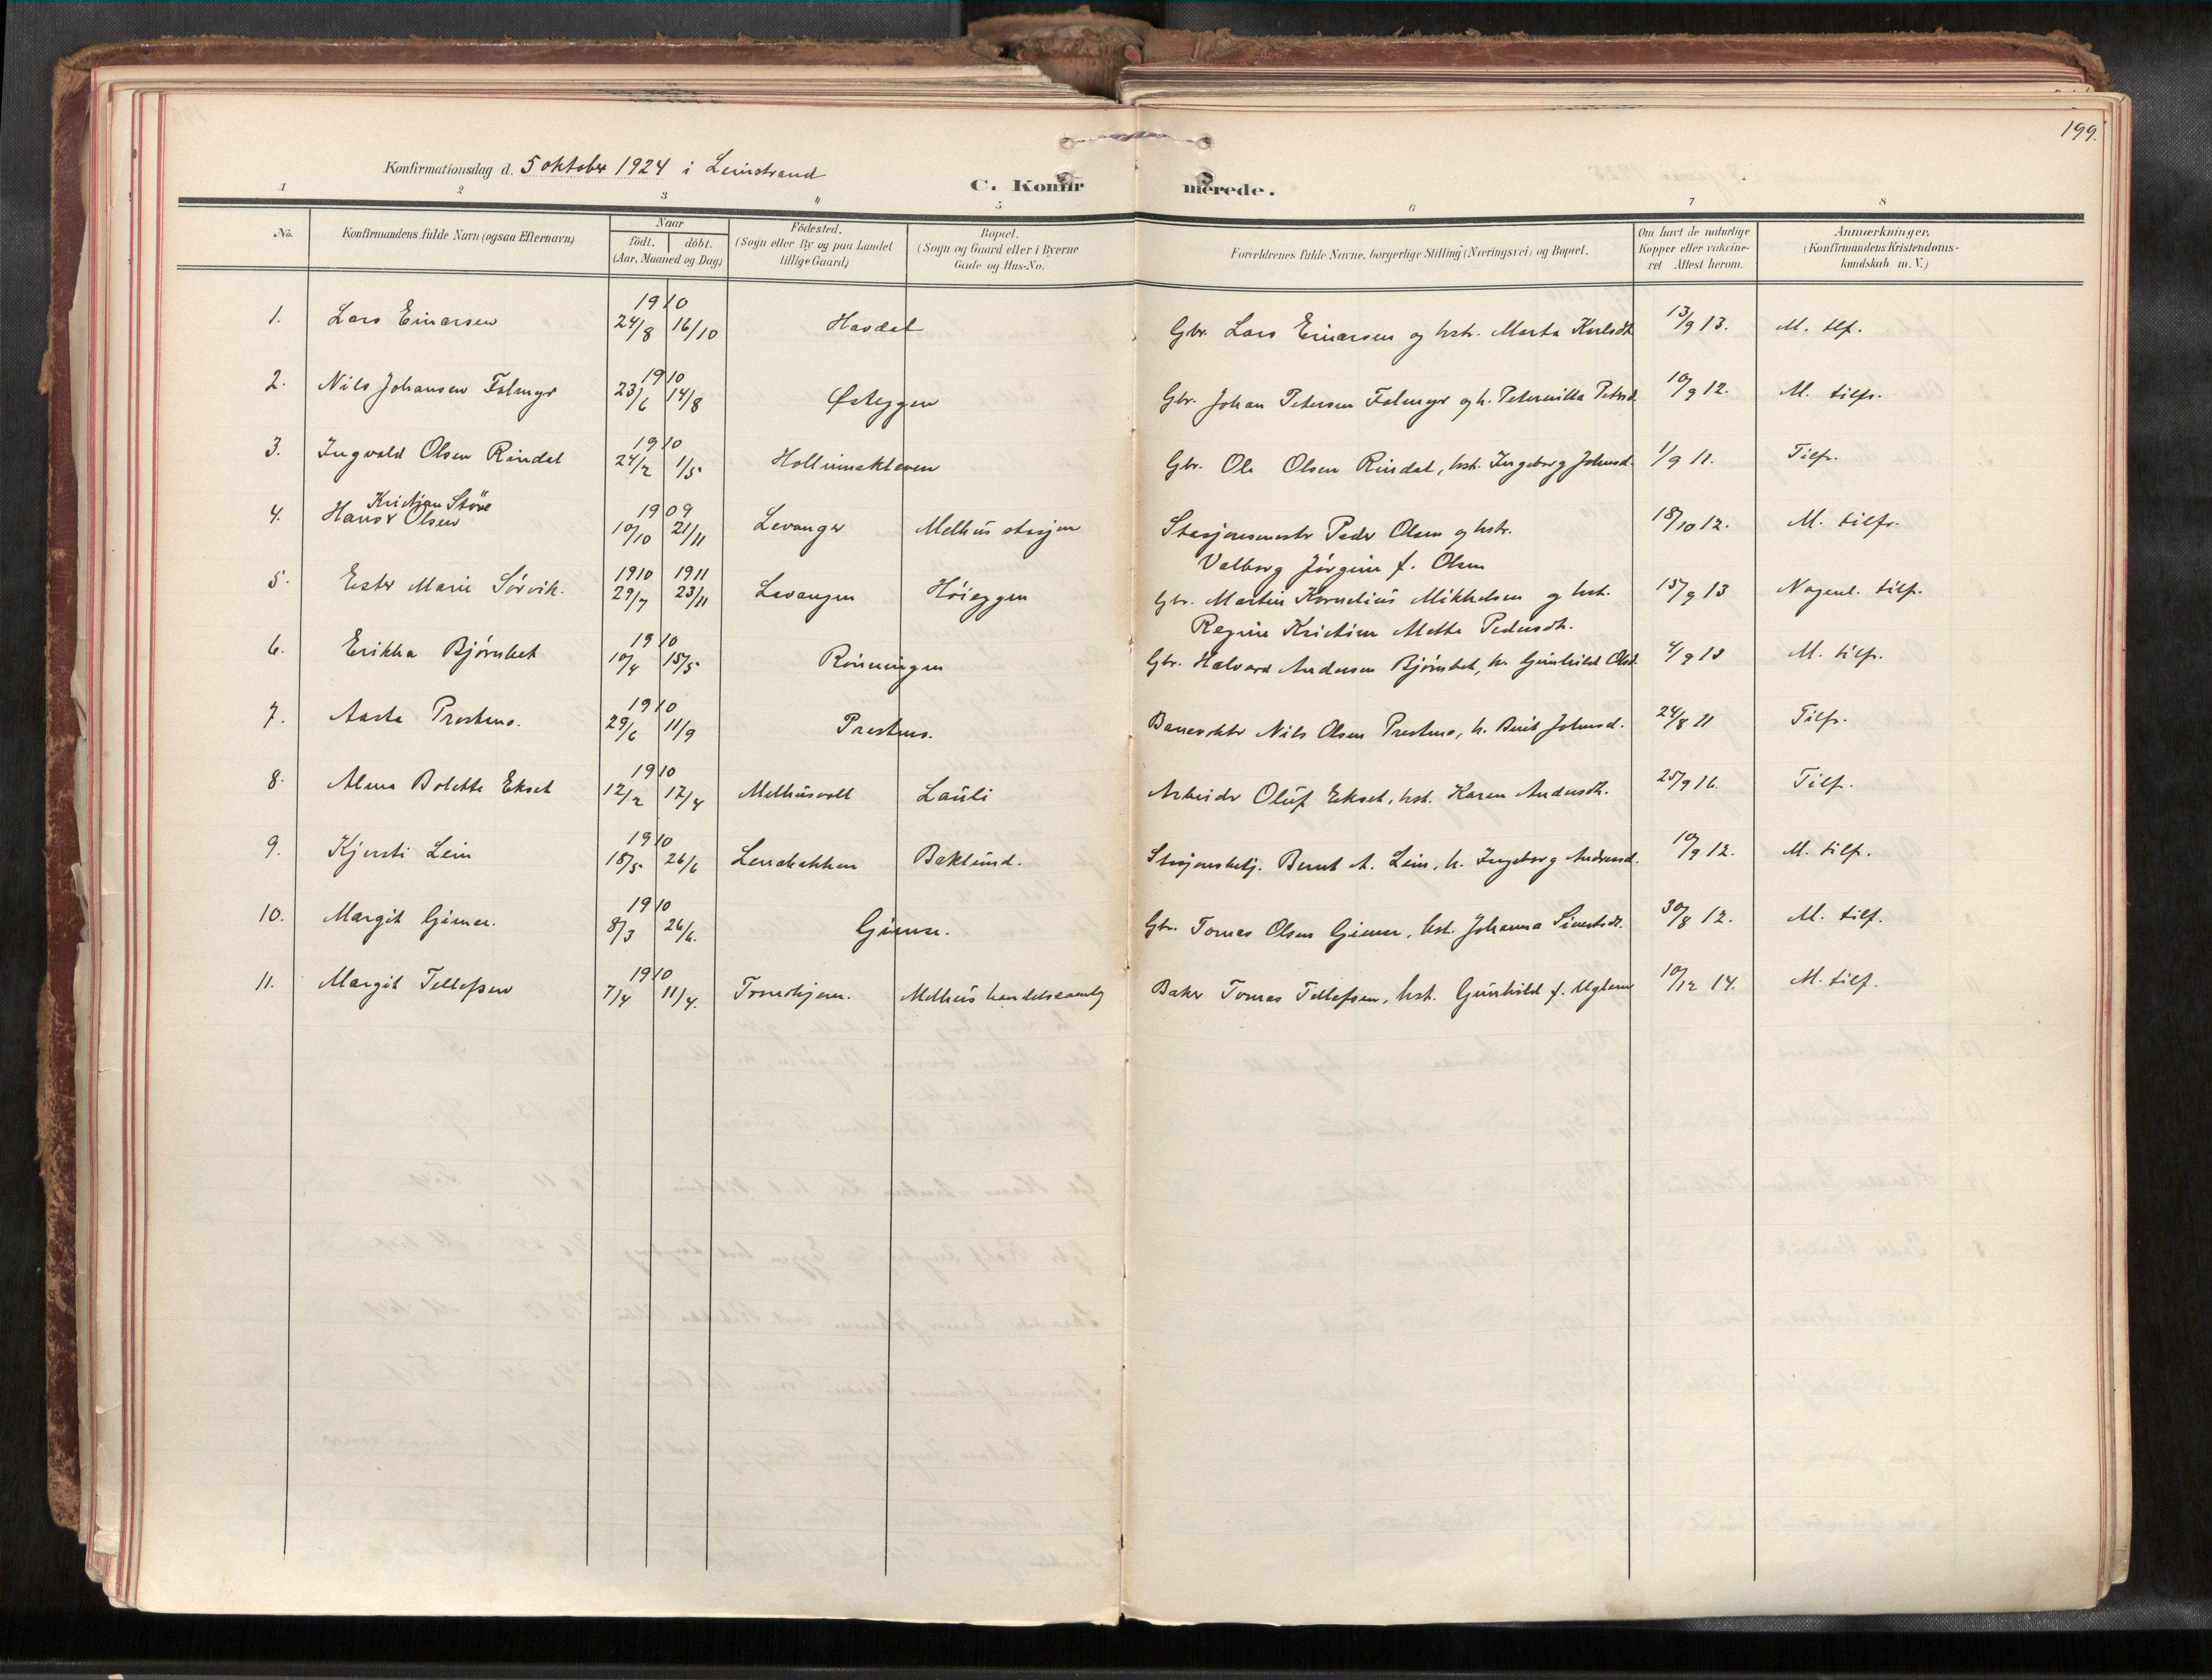 199.
Konfirmationsdag d. 5 oktober 1924 i Leinstrand
C. Konfirmerede.
1 2 3 4 5 6 7 8
No. Konfirmandens fulde Navn (ogsaa Efternavn) Naar født. døbt. (Aar, Maaned og Dag) Fødested. (Sogn eller By og paa Landet tillige Gaard) Bopæl. (Sogn og Gaard eller i Byerne Gade og Hus-No. Forældrenes fulde Navne, borgerlige Stilling (Næringsvei) og Bopæl. Om havt de naturlige Kopper eller vakcineret Attest herom. Anmærkninger. (Konfirmandens Kristendomskundskab m. V.)
1. Lars Einarsen 1910 24/8 16/10 Havdal Gbr. Lars Einarsen og hstr. Marta Karlsdt. 13/9 13. M. tlf.
2. Nils Johansen Folmyr 1910 23/6 14/8 Østeggen Gbr. Johan Petersen Folmyr og h. Peternilla Petersd. 10/9 12. M. tilfr.
3. Ingvald Olsen Rindal 1910 24/2 1/5 Gbr. Ole Olsen Rindal, hst. Ingeborg Johnsd. 1/9 11. Tilfr.
Kristian Støre
4. Hans v Olsen 1909 10/10 21/11 Levanger Melhus stasjon Stasjonsmestr Peder Olsen og hstr. 18/10 12. M. tilfr.
Valborg Jørgine f. Olsen
5. Ester Marie Sørvik. 1910 1911 29/7 23/11 Levangen Høieggen Gbr. Martin Kornelius Mikkelsen og hst. 15/9 13 Nogenl. tilfr.
Regine Kristine Mette Pedersdt.
6. Erikka Bjørnbet 1910 10/4 15/5 Rønningen Gbr. Halvard Andersen Bjørnbet, h. Gunhild Olsd. 4/9 13 M. tilfr.
7. Aasta Prestmo. 1910 29/6 11/9 Prestmo. Banevokter Nils Olsen Prestmo, h. Berit Johnsd. 24/8 11 Tilfr.
8. Alma Bolette Ekset 1910 12/2 17/4 Melhusvoll Lauli Arbeider Oluf Ekset, hst. Karen Andersdt. 25/9 16. Tilf.
9. Kjersti Lein 1910 18/5 26/6 Lerabakken Baklund. Stasjonsbetj. Bernt A. Lein, h. Ingeborg Andersd. 10/9 12. M. tilf.
10. Margit Gimse. 1910 8/3 26/6. Gimse. Gbr. Tomas Olsen Gimse, hst. Johanna Sivertsdt. 30/8 12. M. tilf.
11. Margit Tellefsen 1910 7/4 11/4. Trondhjem. Melhus handelssamlg Baker Tomas Tellefsen, hst. Gunhild f. Uglem 10/12 14. M. tilf.